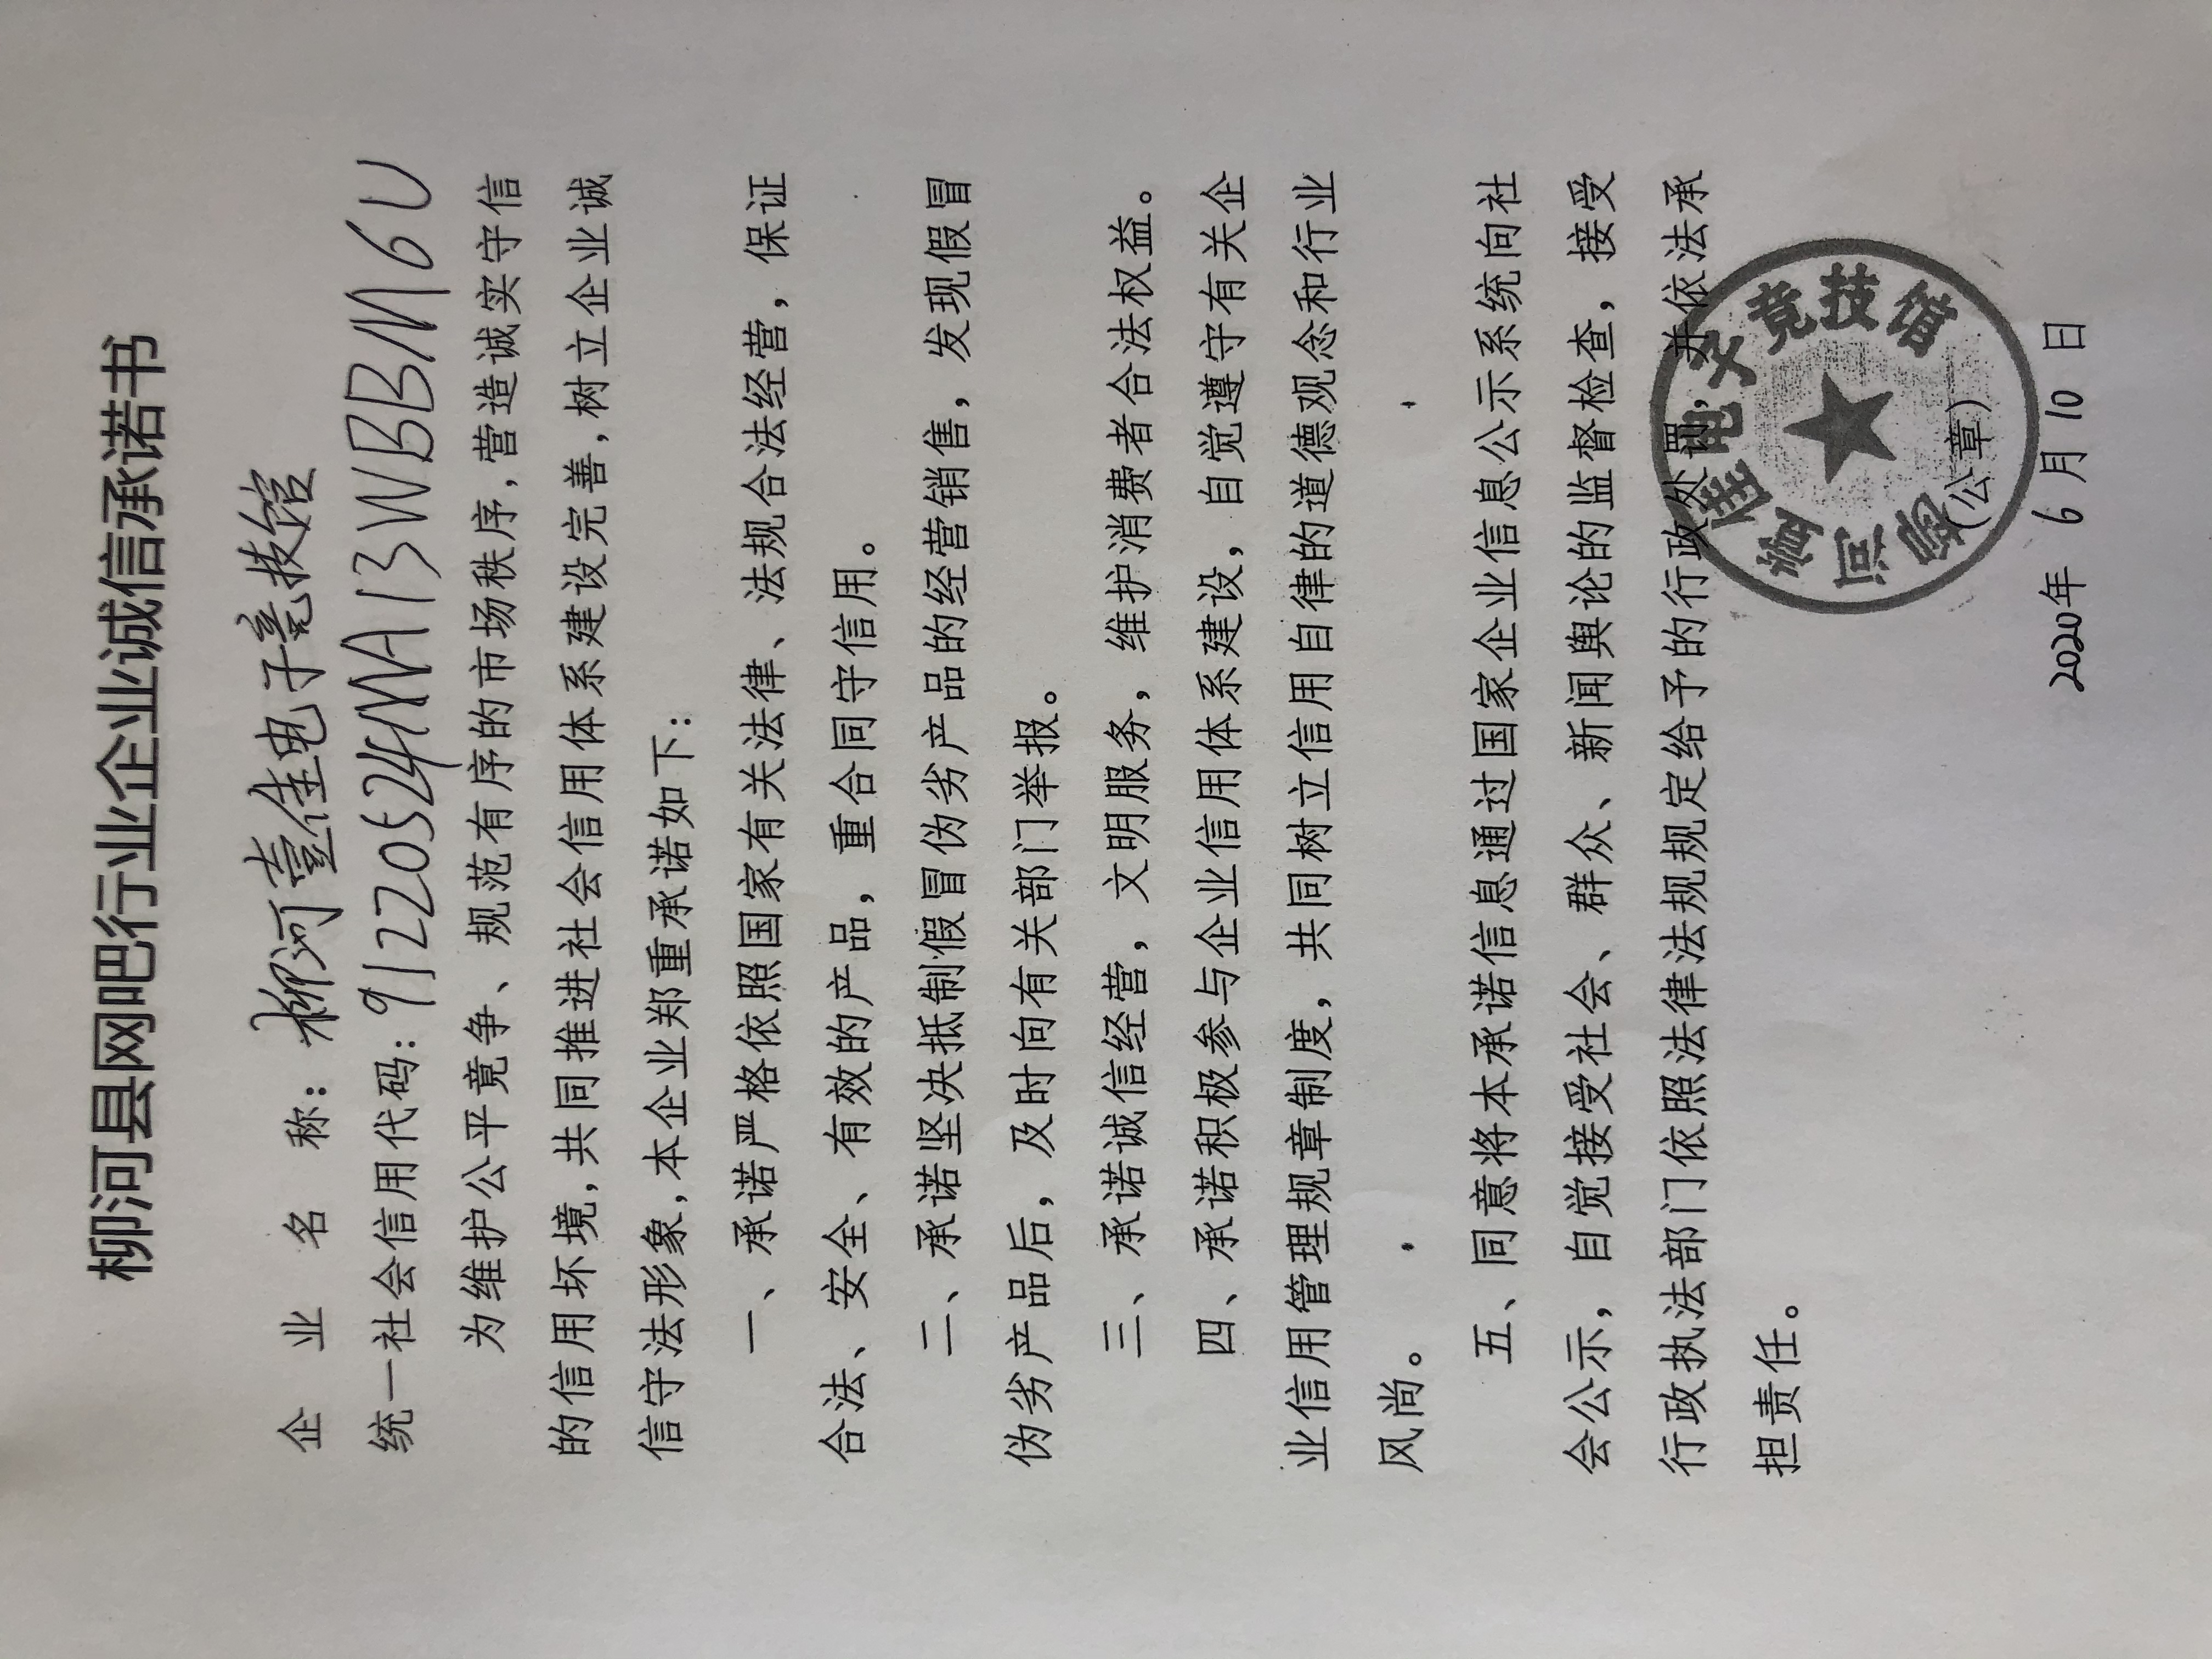 柳河县网吧行业企业诚信承诺书
企业名称：柳河壹佳电子竞技馆
统一社会信用代码：91220524MA13WBBM6U
为维护公平竟争、规范有序的市场秩序,营造诚实守信
的信用坏境,共同推进社会信用体系建设完善,树立企业诚
信守法形象,本企业郑重承诺如下：
一、承诺严格依照国家有关法律、法规合法经营，保证
合法、安全、有效的产品，重合同守信用。
二、承诺坚决抵制假冒伪劣产品的经营销售，发现假冒
伪劣产品后，及时向有关部门举报。
三、承诺诚信经营，文明服务，维护消费者合法权益。
四、承诺积极参与企业信用体系建设，自觉遵守有关企
业信用管理规章制度，共同树立信用自律的道德观念和行业
风尚。
五、同意将本承诺信息通过国家企业信息公示系统向社
会公示，自觉接受社会、群众、新闻舆论的监督检查，接受
行政执法部门依照法律法规规定给予的行政处罚，并依法承
担责任。
柳河壹佳电子竞技馆
（公章）
2020年6月10日